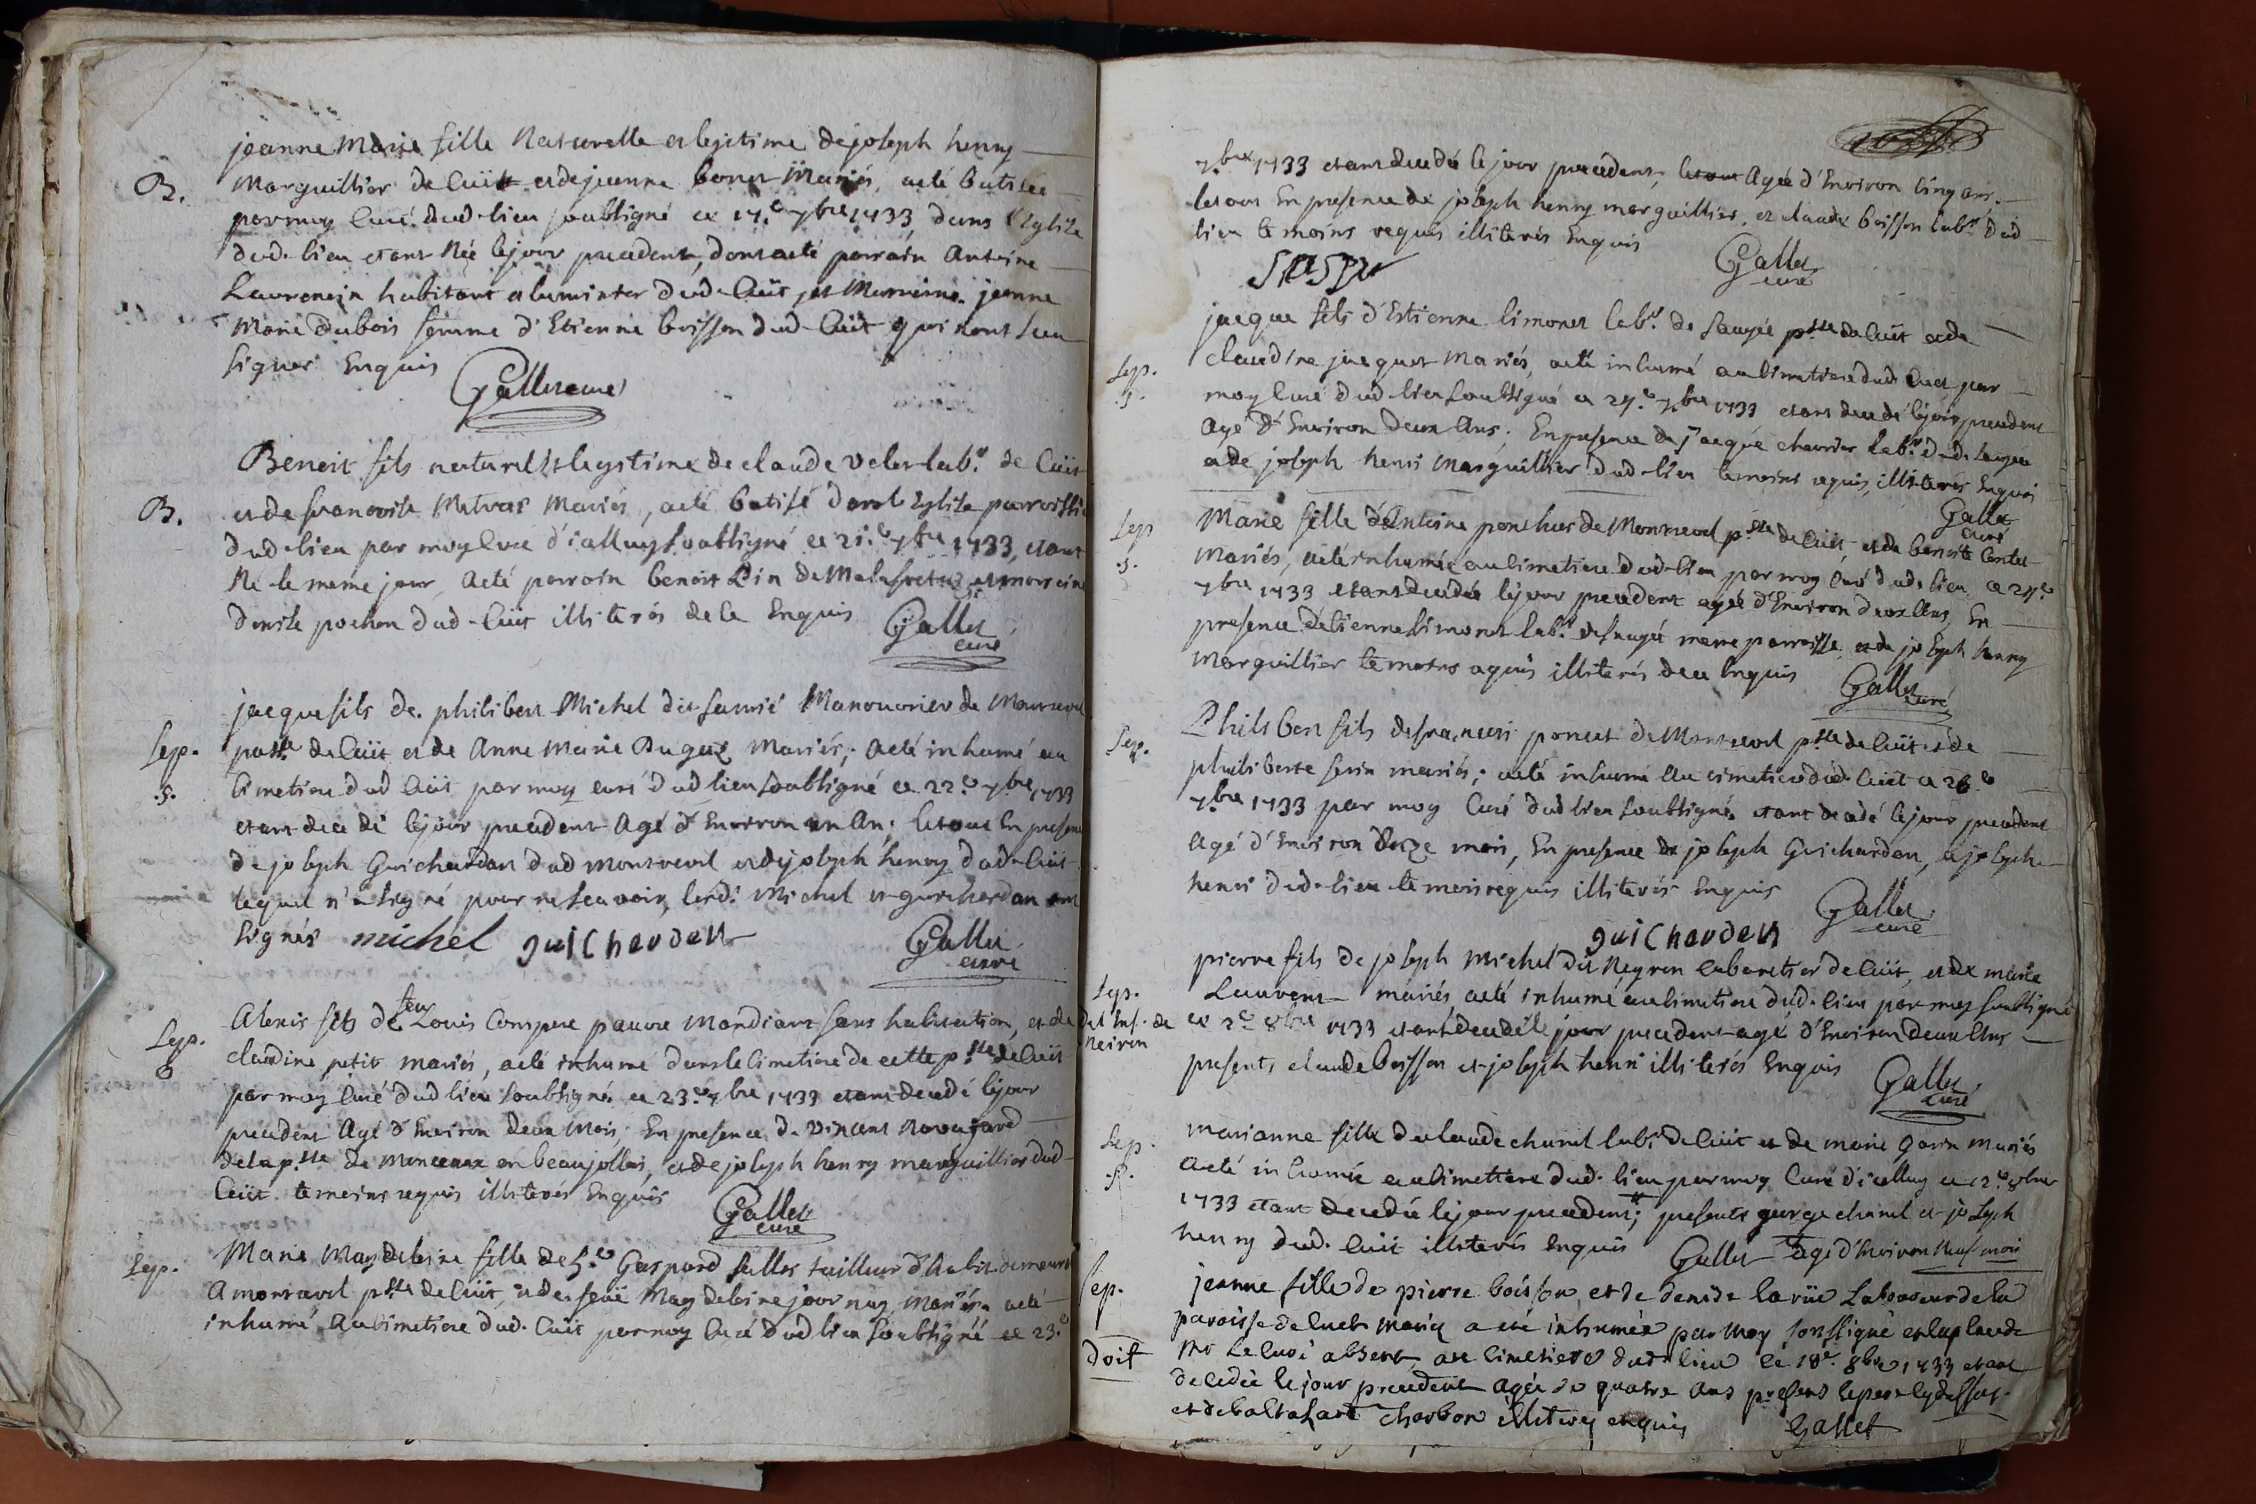 jeanne Marie fille Naturelle et legitime de joseph henny
B.
Marguillier de Cüit et de jeanne bonet Mariés, a eté batisée
par moy Curé dud. lieu soubsigné ce 17.e 7bre 1733, dans l'Eglise
dud. lieu etant Née le jour precedent, dont a eté parrain Antoine
Laurencin habitant et luminier dud. Cüit, et Marraine jeanne
Marie Dubois femme d'Etienne boisson dud. Cüit qui n'ont sceu
signer Enquis
Gallet curé
Benoit fils naturel et legitime de claude velet lab.r de Cüit
B.
et de francoise Mariés, a eté batisé dans l'Eglise
dud. lieu par moy Curé d'icelluy soubsigné ce 21.e 7bre 1733, etant
Né le meme jour, a eté parrain benoit Pin de et marraine
denise pochon dud. Cüit illiterés de ce Enquis
Gallet
curé
jacque fils de philibert Michel dit Manouvrier de Montrevel
Sep.
pa.sse de Cüit et de Anne Marie Mariés; a eté inhumé au
.s.
Cimetiere dud Cüit par moy curé dud lieu soubsigné ce 22.e 7bre 1733
etant decedé le jour precedent Agé d'Environ un An; le tout En presence
de joseph Guichardan dud Montrevel et de joseph henny dud. Cüit
lequel n'a signé pour ne scavoir, lesd. Michel et guichardan ont
signés michel guichardan
Gallet
curé
Alexis fils de
feu
Louis Compere pauvre Mandiant sans habitation, et de
Sep.
claudine petit mariés, a eté inhumé dans le Cimetiere de cette p.sse de Cüit
par moy Curé dud lieu soubsigné ce 23.e 7bre 1733 etant decedé le jour
precedent Agé d'Environ deux Mois; En presence de Vincent
de la p.sse de en beaujollois, et de joseph henny marguillier dud
Cüit temoins requis illiterés Enquis
Gallet
curé
Sep.
Marie Magdeleine fille de Gaspard Salles tailleur d'habit demeurant
A montrevel p.sse de Cüit, et de Magdeleine Mariés a eté
inhumé Au Cimetiere dud. Cüit par moy Curé dud lieu soubsigné ce 23.e
7.bre 1733 etant decedée le jour precedent, Agée d'Environ cinq ans.
le tout En presence de joseph henny marguillier, et claude boisson lab.r dud
lieu temoins requis illiterés Enquis
Gallet
curé
jacque fils d'Estienne Simonet lab.r de p.sse de Cüit et de
Sep.
.s.
claudine jacquet Mariés, a eté inhumé au Cimetiere dud. Cüit par
moy Curé dud lieu soubsigné ce 24.e 7bre 1733 etant decedé le jour precedent
Agé d'Environ deux Ans; En presence de jacque chavrier Lab.r dud.
et de joseph henri Marguillier dud lieu temoins requis, illiterés Enquis
Gallet
curé
Sep
.s.
Marie fille d'Antoine de Montrevel p.sse de Cüit et de benoite
Mariés, a eté inhumée au Cimetiere dud. lieu par moy Curé dud. lieu, ce 24.e
7bre 1733 etant decedée le jour precedent agée d'Environ deux Ans, En
presence d'Etienne Simonet lab.r de meme parroisse, et de joseph henny
Marguillier temoins requis illiterés de ce Enquis
Gallet
curé
Philibert fils de francois poncet de Montrevel p.sse de Cüit et de
Sep.
philiberte mariés; a eté inhumé Au cimetiere dud. Cüit ce 26.e
7.bre 1733 par moy Curé dud lieu soubsigné, etant decedé le jour precedent
Agé d'Environ mois, En presence de joseph Guichardan, et joseph
henri dud. lieu temoins requis illiterés Enquis
Gallet
curé
guichardan
pierre fils de joseph Michel dit Neyron cabaretier de Cüit, et de marie
Sep.
dit de
Neiron
Laurent mariés a eté inhumé au cimetiere dud. lieu par moy soubsigné
ce 2.e 8bre 1733 etant decedé le jour precedent agé d'Environ deux Ans
presents claude boisson et joseph henri illiterés Enquis
Gallet
curé
Sep.
.s.
marianne fille de claude chanel lab.r de Cüit et de marie Gonin Mariés
a eté inhumée au Cimettiere dud. lieu par moy Curé d'icelluy ce 12.e 8bre
1733 etant decedée le jour precedent; presents george chanel et joseph
henny dud. Cüit illiterés Enquis
Gallet
agé d'Environ Neuf mois
Sep.
doit
jeanne fille de pierre boisson et de denise la rüe Laboureur de la
paroisse de Cuet Mariez a eté inhumée par Moy soussigné en la place de
Mr Le Curé absent au Cimetiere dudt lieu le 18e. 8bre 1733 etant
decedée le jour precedent agée de quatre Ans present le pere cydessus
et de baltasard charbon illiterez enquis
Gallet